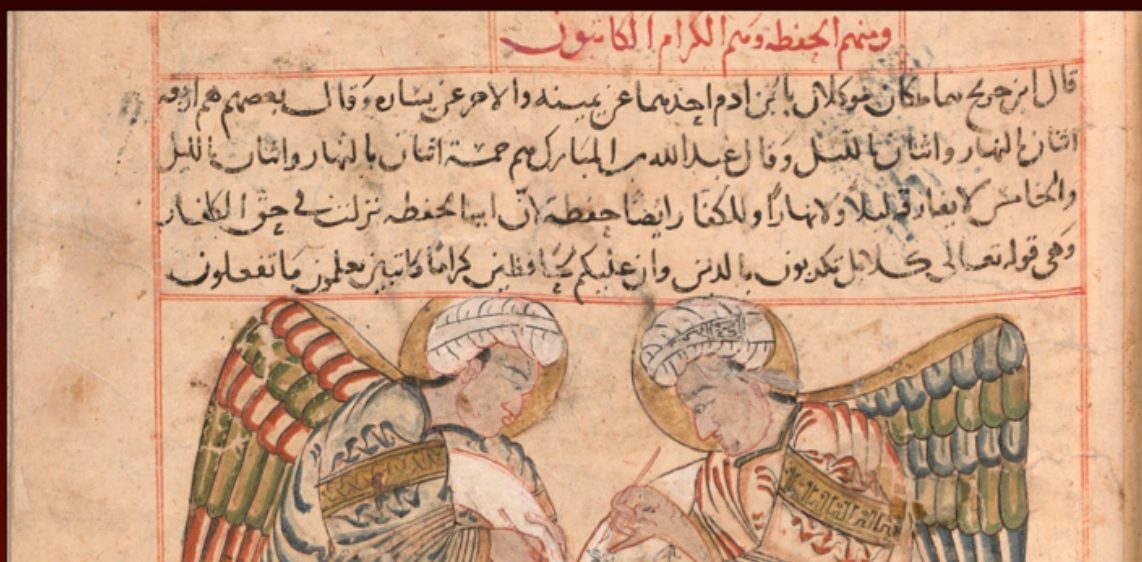 ومنهم الحفظه وهم الكرام الكاتبون
قال ابن جريج هما ملكان موكلان بابن ادم احدهما عن يمينه والاخر عن يساره وقال بعضهم هم اربعه
اثنان بالنهار واثنان بالليل وقال عبد الله بن المبارك هم خمسة اثنان بالنهار واثنان بالليل
والخامس لا يفارقه ليلا ولا نهارا وللكفار ايضا حفظة لان اية الحفظه نزلت في حق الكفار
وهي قوله تعالى كلا بل تكذبون بالدين وان عليكم لحافظين كراما كاتبين يعلمون ما تفعلون